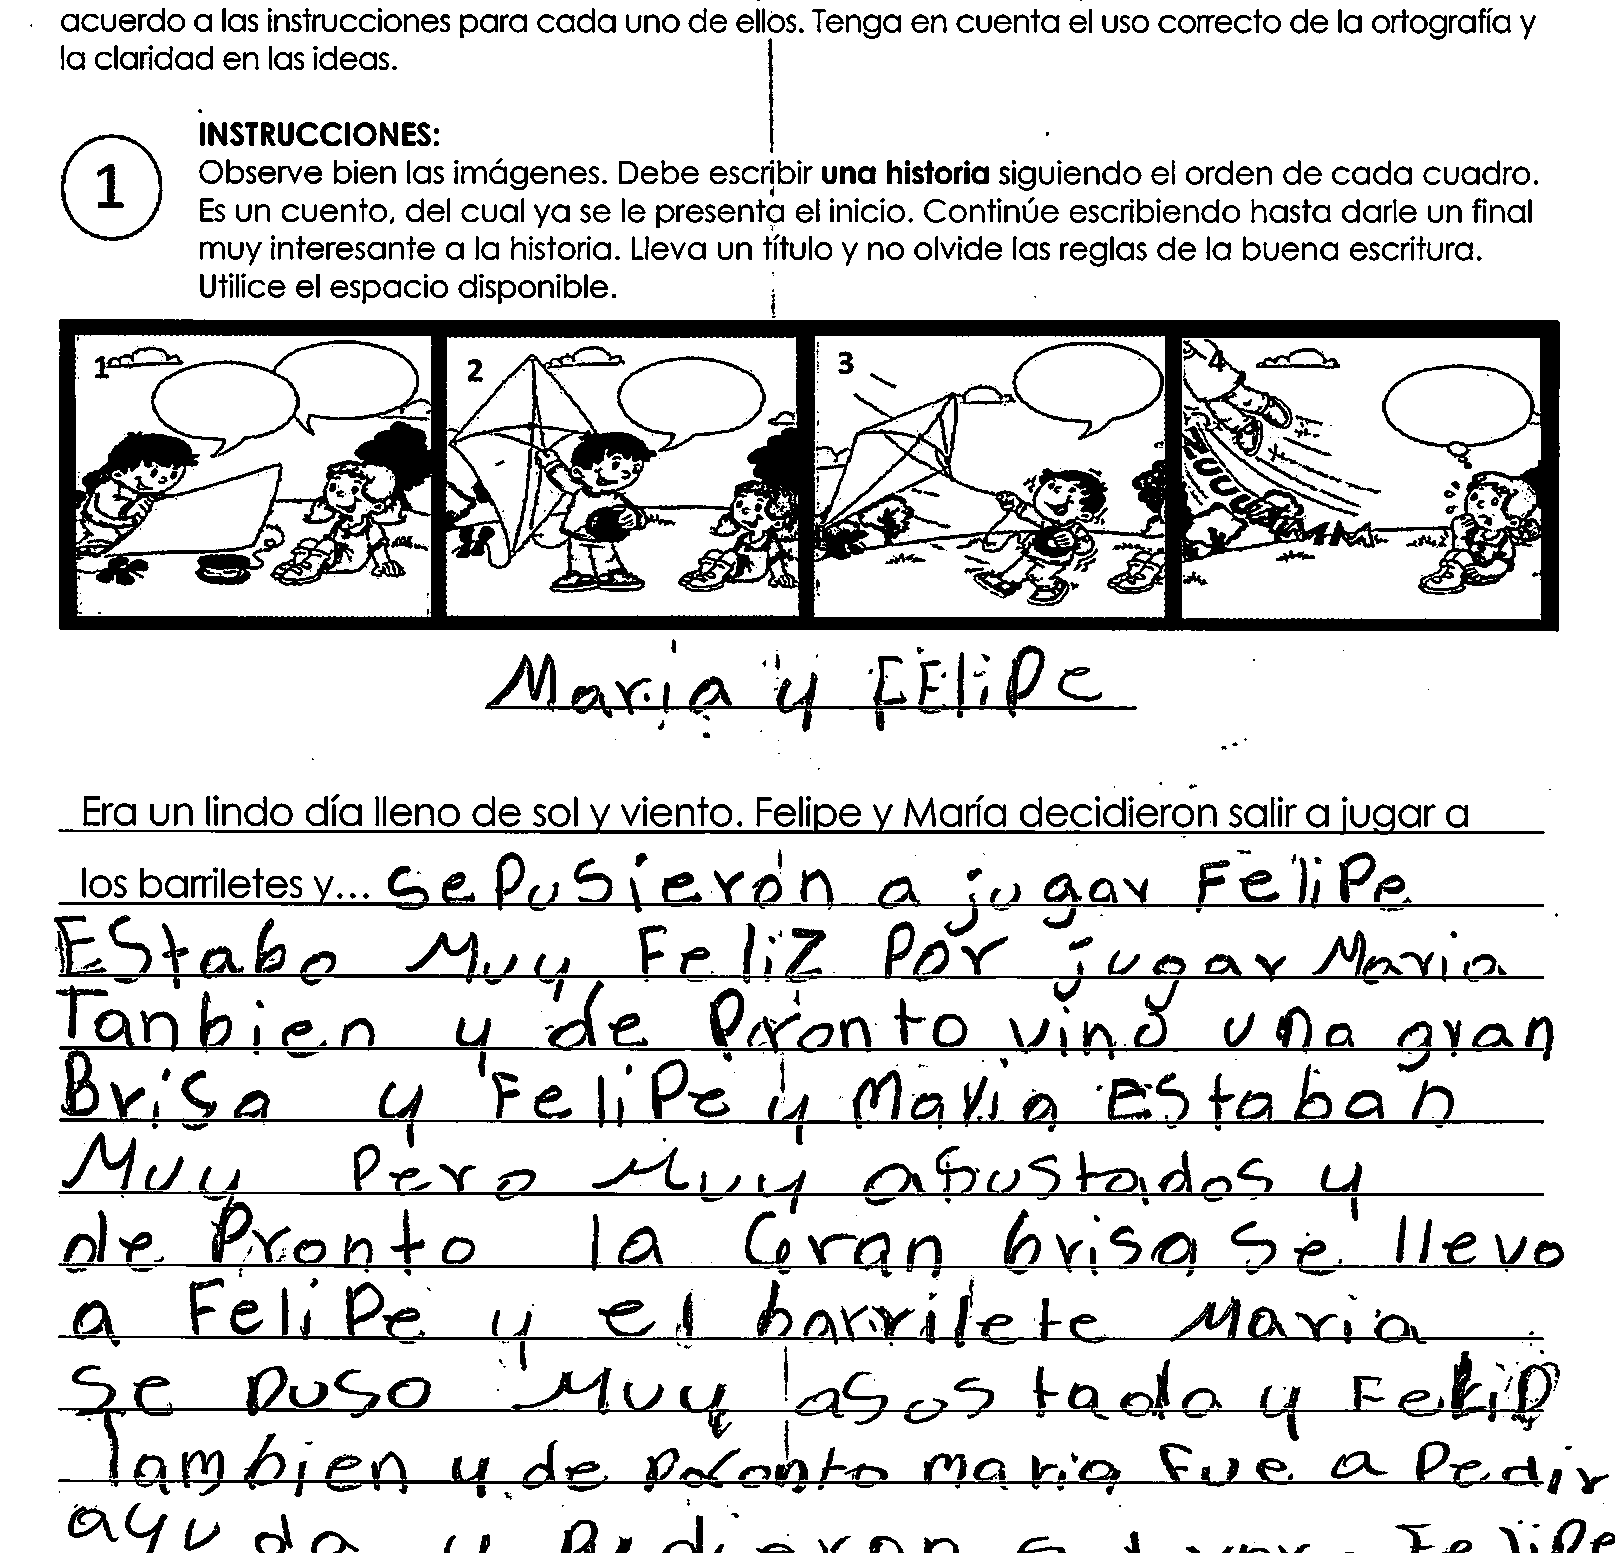 acuerdo a las instrucciones para cada uno de ellos. Tenga en cuenta el uso correcto de la ortografía y
la claridad en las ideas.
1
INSTRUCCIONES:
Observe bien las imágenes. Debe escribir una historia siguiendo el orden de cada cuadro.
Es un cuento, del cual ya se le presenta el inicio. Continúe escribiendo hasta darle un final
muy interesante a la historia. Lleva un título y no olvide las reglas de la buena escritura.
Utilice el espacio disponible.
1 2 3 4
Maria y FEliPe
Era un lindo día lleno de sol y viento. Felipe y María decidieron salir a jugar a
los barriletes y... se Pusieron a jugar FeliPe
EStabo Muy FeliZ Por jugar Maria
Tanbien y de Pronto vino una gran
Brisa y FeliPe y Maria EStaban
Muy Pero Muy asustados y
de Pronto la Gran brisa se llevo
a FeliPe y el barrilete Maria
se puso Muy asostada y Felip
Tambien y de pronto maria Fue a Pedir
ayuda y FeliPe